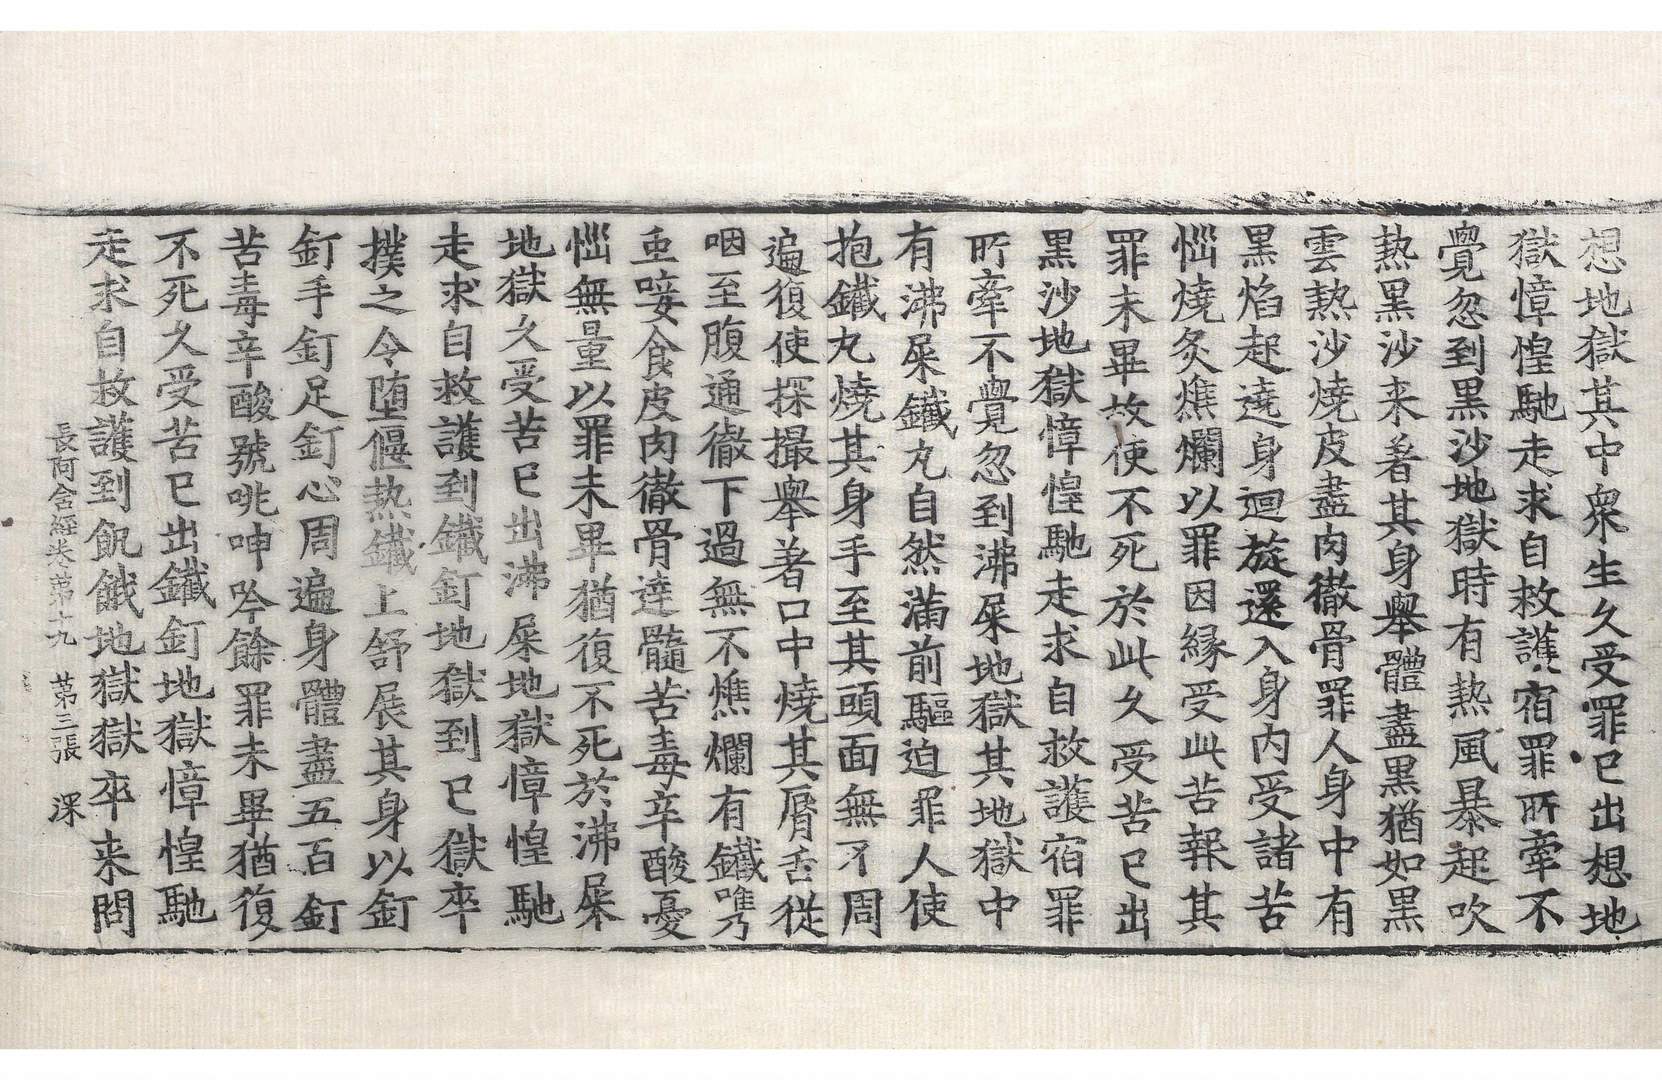 想地獄其中衆生久受罪已出想地
獄慞惶馳走求自救護宿罪所牽不
覺忽到黑沙地獄時有熱風暴起吹
熱黑沙来著其身舉體盡黑猶如黑
雲熱沙燒皮盡肉徹骨罪人身中有
黑焰起遶身迴旋還入身內受諸苦
惱燒炙燋爛以罪因緣受此苦報其
罪未畢故使不死於此久受苦已出
黑沙地獄慞惶馳走求自救護宿罪
所牽不覺忽到沸屎地獄其地獄中
有沸屎鐵丸自然滿前驅迫罪人使
抱鐵丸燒其身手至其頭面無不周
遍復使探撮舉著口中燒其脣舌從
咽至腹通徹下過無不燋爛有鐵嘴
虫唼食皮肉徹骨達髓苦毒辛酸憂
惱無量以罪未畢猶復不死於沸屎
地獄久受苦已出沸屎地獄慞惶馳
走求自救護到鐵釘地獄到已獄卒
撲之令墮偃熱鐵上舒展其身以釘
釘手釘足釘心周遍身體盡五百釘
苦毒辛酸號咷呻吟餘罪未畢猶復
不死久受苦已出鐵釘地獄慞惶馳
走求自救護到飢餓地獄獄卒来問
長阿含經卷第十九　第三張　深